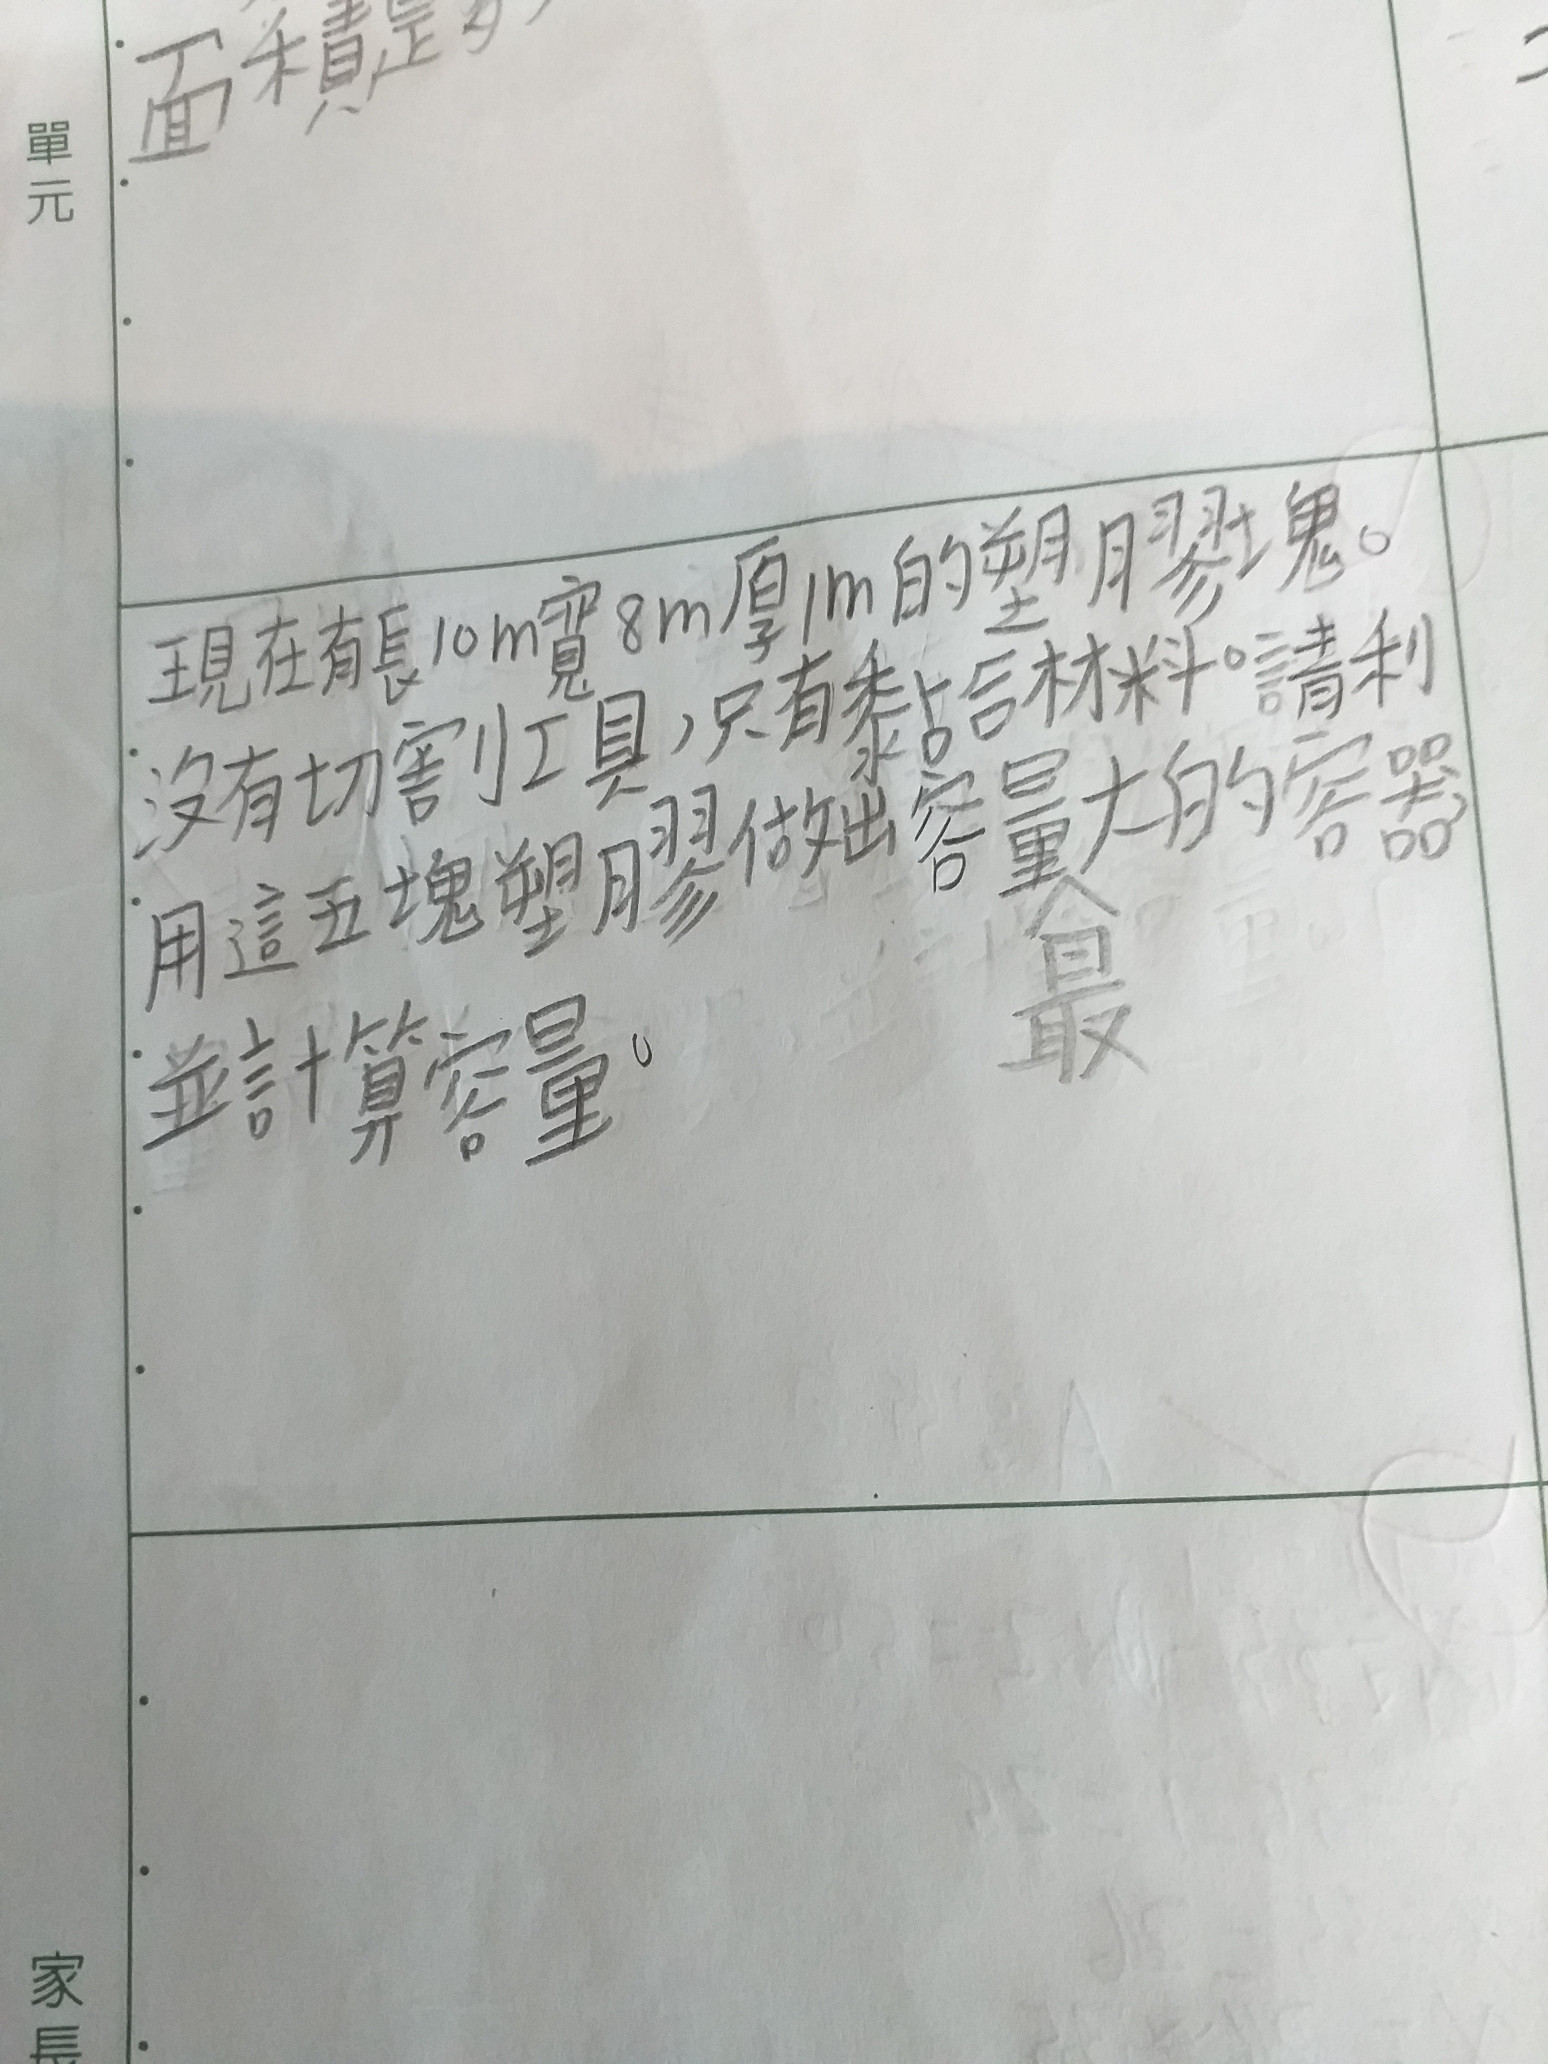 面積是多
單元
現在有長10m寬8m厚1m的塑膠塊。
沒有切割工具，只有黏合材料。請利
用這五塊塑膠做出容量最大的容器，
並計算容量。
家長